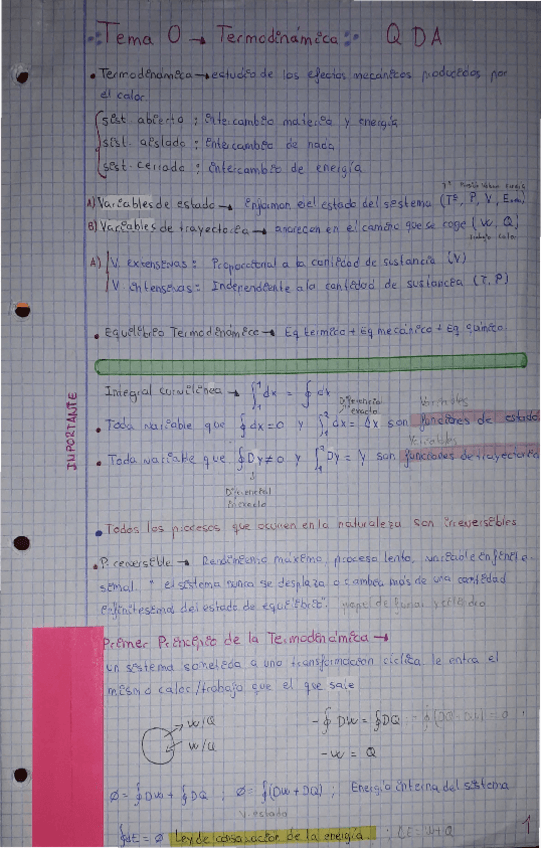 Tema 0 → Termodinámica QDA
• Termodinámica → estudio de los efectos mecánicos producidos por
el calor
sist abierto : intercambio materia y energía
sist. aislado : intercambio de nada
sist. cerrado : intercambio de energía
A) Variables de estado → en el estado del sistema (Tª, P, V,
B) Variables de trayectoria → aparecen en el camino que se coge (W, Q)
trabajo calor
A) V. extensivas : Proporcional a la cantidad de sustancia (V)
V intensivas : Independiente a la cantidad de sustancia (T, P)
• Equilibrio Termodinámico → Eq termico + Eq mecánico + Eq químico.
IMPORTANTE
Integral curvilínea → ∫₁¹ dx = ∮ dx
Diferencial
exacto
Variables
• Toda variable que ∮ dx = 0 y ∫₁² dx = Δx son funciones de estado
Variables
• Toda variable que ∮ Dy ≠ 0 y ∫₁² Dy = y son funciones de trayectoria
Diferencial
Inexacto
• Todos los procesos que ocurren en la naturaleza son irreversibles
• P. reversible → Rendimiento máximo, proceso lento, variable infinite
simal. " el sistema nunca se desplaza o cambia más de una cantidad
infinitesimal del estado de equilibrio".
Primer Principio de la Termodinámica →
un sistema sometido a una transformación cíclica le entra el
mismo calor/trabajo que el que sale
W/Q
W/Q
-∮ DW = ∮ DQ
-W = Q
0 = ∮ DW + ∮ DQ ; 0 = ∮(DW + DQ) ; Energía interna del sistema
V. estado
∮ dE = 0 Ley de conservación de la energía. ; ΔE = W + Q
1